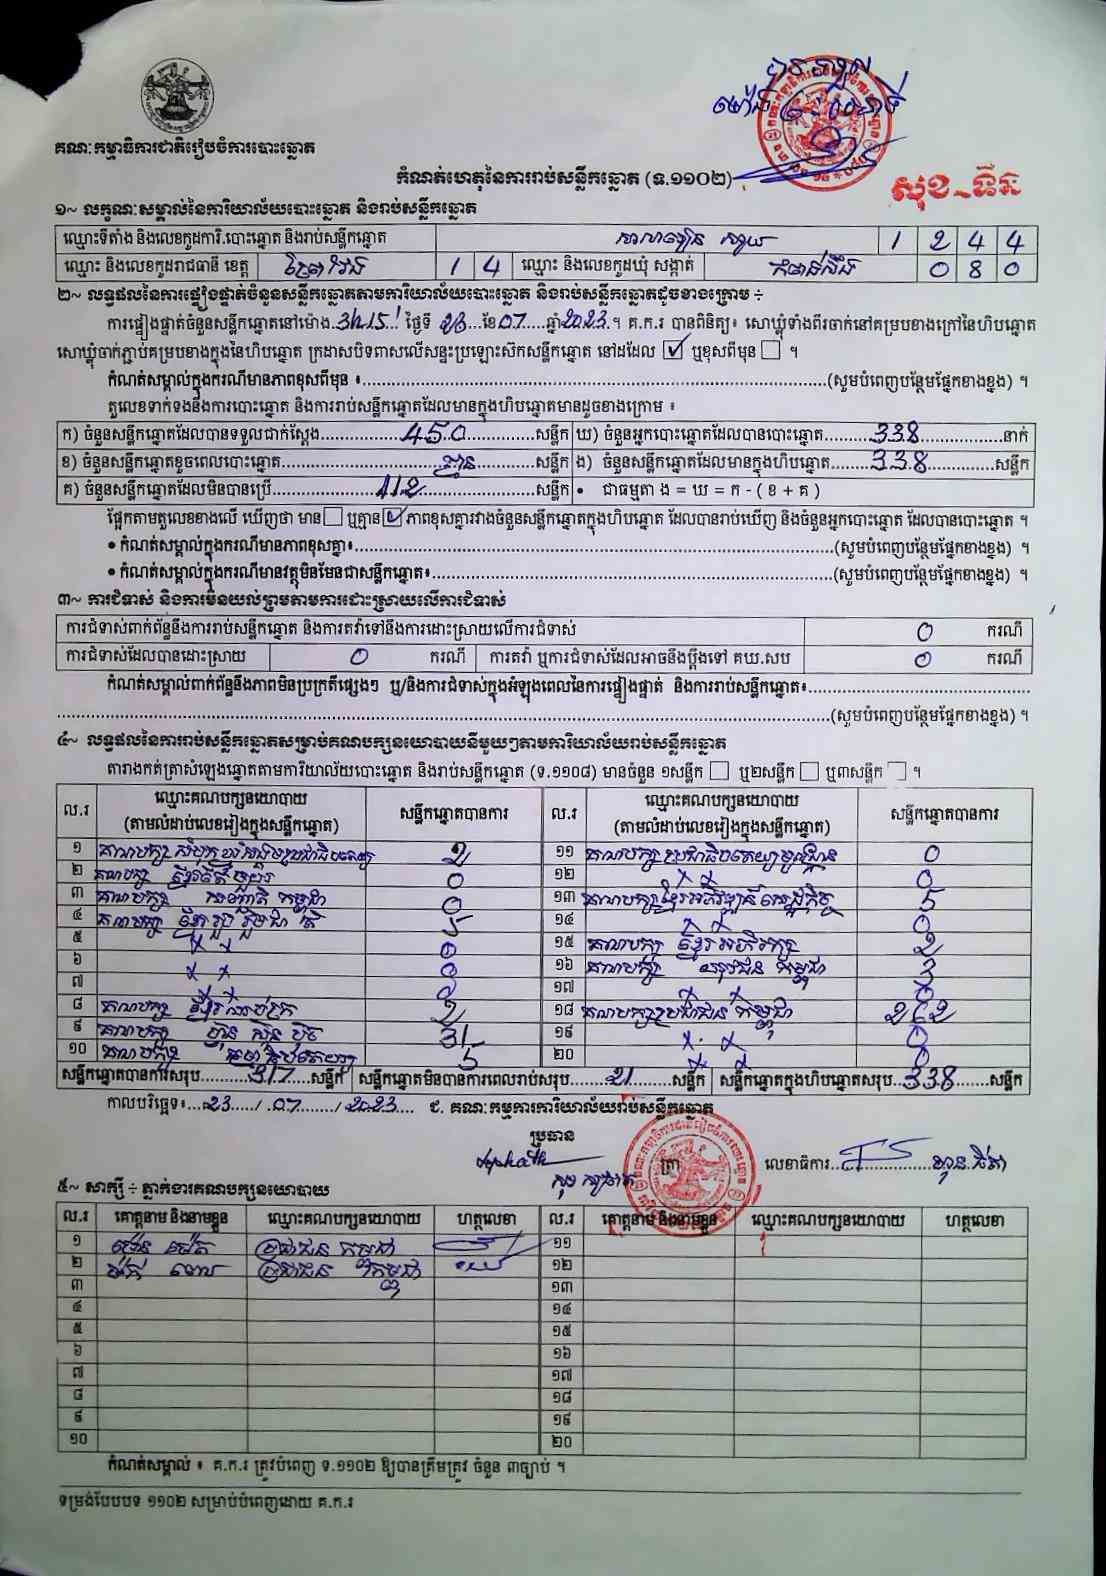 គណៈកម្មាធិការជាតិរៀបចំការបោះឆ្នោត
កំណត់ហេតុនៃការរាប់សន្លឹកឆ្នោត (ទ.១១០២)
សុខ-ទីវ
១~ លក្ខណៈសម្គាល់នៃការិយាល័យបោះឆ្នោត និងរាប់សន្លឹកឆ្នោត
ឈ្មោះទីតាំង និងលេខកូដការិ.បោះឆ្នោត និងរាប់សន្លឹកឆ្នោត 1 2 4 4
ឈ្មោះ និងលេខកូដរាជធានី ខេត្ត ព្រៃវែង 1 4 ឈ្មោះ និងលេខកូដឃុំ សង្កាត់ 0 8 0
២~ លទ្ធផលនៃការផ្ទៀងផ្ទាត់ចំនួនសន្លឹកឆ្នោតតាមការិយាល័យបោះឆ្នោត និងរាប់សន្លឹកឆ្នោតដូចខាងក្រោម ÷
ការផ្ទៀងផ្ទាត់ចំនួនសន្លឹកឆ្នោតនៅម៉ោង 3h15' ថ្ងៃទី 23 ខែ 07 ឆ្នាំ 2023 ។ គ.ក.រ បានពិនិត្យ៖ សោឃ្លុំទាំងពីរចាក់នៅគម្របខាងក្រៅនៃហិបឆ្នោត
សោឃ្លុំចាក់ភ្ជាប់គម្របខាងក្នុងនៃហិបឆ្នោត ក្រដាសបិទពាសលើសន្ទះប្រឡោះស៊កសន្លឹកឆ្នោត នៅដដែល ☑ ឬខុសពីមុន ☐ ។
កំណត់សម្គាល់ក្នុងករណីមានភាពខុសពីមុន ៖ (សូមបំពេញបន្ថែមផ្នែកខាងខ្នង) ។
តួលេខទាក់ទងនឹងការបោះឆ្នោត និងការរាប់សន្លឹកឆ្នោតដែលមានក្នុងហិបឆ្នោតមានដូចខាងក្រោម ៖
ក) ចំនួនសន្លឹកឆ្នោតដែលបានទទួលជាក់ស្តែង 450 សន្លឹក ឃ) ចំនួនអ្នកបោះឆ្នោតដែលបានបោះឆ្នោត 338 នាក់
ខ) ចំនួនសន្លឹកឆ្នោតខូចពេលបោះឆ្នោត គ្មាន សន្លឹក ង) ចំនួនសន្លឹកឆ្នោតដែលមានក្នុងហិបឆ្នោត 338 សន្លឹក
គ) ចំនួនសន្លឹកឆ្នោតដែលមិនបានប្រើ 112 សន្លឹក • ជាធម្មតា ង = ឃ = ក - ( ខ + គ )
ផ្អែកតាមតួលេខខាងលើ ឃើញថា មាន ☐ ឬគ្មាន ☑ ភាពខុសគ្នារវាងចំនួនសន្លឹកឆ្នោតក្នុងហិបឆ្នោត ដែលបានរាប់ឃើញ និងចំនួនអ្នកបោះឆ្នោត ដែលបានបោះឆ្នោត ។
• កំណត់សម្គាល់ក្នុងករណីមានភាពខុសគ្នា៖ (សូមបំពេញបន្ថែមផ្នែកខាងខ្នង) ។
• កំណត់សម្គាល់ក្នុងករណីមានវត្ថុមិនមែនជាសន្លឹកឆ្នោត៖ (សូមបំពេញបន្ថែមផ្នែកខាងខ្នង) ។
៣~ ការជំទាស់ និងការមិនយល់ព្រមតាមការដោះស្រាយលើការជំទាស់
ការជំទាស់ពាក់ព័ន្ធនឹងការរាប់សន្លឹកឆ្នោត និងការតវ៉ាទៅនឹងការដោះស្រាយលើការជំទាស់ 0 ករណី
ការជំទាស់ដែលបានដោះស្រាយ 0 ករណី ការតវ៉ា ឬការជំទាស់ដែលអាចនឹងប្តឹងទៅ គឃ.សប 0 ករណី
កំណត់សម្គាល់ពាក់ព័ន្ធនឹងភាពមិនប្រក្រតីផ្សេងៗ ឬ/និងការជំទាស់ក្នុងអំឡុងពេលនៃការផ្ទៀងផ្ទាត់ និងការរាប់សន្លឹកឆ្នោត៖
(សូមបំពេញបន្ថែមផ្នែកខាងខ្នង) ។
៤~ លទ្ធផលនៃការរាប់សន្លឹកឆ្នោតសម្រាប់គណបក្សនយោបាយនីមួយៗតាមការិយាល័យរាប់សន្លឹកឆ្នោត
តារាងកត់ត្រាសំឡេងឆ្នោតតាមការិយាល័យបោះឆ្នោត និងរាប់សន្លឹកឆ្នោត (ទ.១១០៨) មានចំនួន ១សន្លឹក ☐ ឬ២សន្លឹក ☐ ឬ៣សន្លឹក ☐ ។
ល.រ ឈ្មោះគណបក្សនយោបាយ (តាមលំដាប់លេខរៀងក្នុងសន្លឹកឆ្នោត) សន្លឹកឆ្នោតបានការ ល.រ ឈ្មោះគណបក្សនយោបាយ (តាមលំដាប់លេខរៀងក្នុងសន្លឹកឆ្នោត) សន្លឹកឆ្នោតបានការ
១ គណបក្ស 2 ១១ គណបក្ស ប្រជាធិបតេយ្យមូលដ្ឋាន 0
២ គណបក្ស 0 ១២ x x 0
៣ គណបក្ស កម្ពុជា 0 ១៣ គណបក្ស ខ្មែរអភិវឌ្ឍន៍សេដ្ឋកិច្ច 5
៤ គណបក្ស ខ្មែររួបរួមជាតិ 5 ១៤ x x 0
៥ x x 0 ១៥ គណបក្ស ខ្មែរអភិរក្ស 2
៦ x x 0 ១៦ គណបក្ស យុវជនកម្ពុជា 3
៧ 0 ១៧ x x 0
៨ គណបក្ស 2 ១៨ គណបក្សប្រជាជនកម្ពុជា 262
៩ គណបក្ស ហ្វ៊ុនស៊ិនប៉ិច 31 ១៩ x x 0
១០ គណបក្ស ធម្មាធិបតេយ្យ 5 ២០ x x 0
សន្លឹកឆ្នោតបានការសរុប 317 សន្លឹក សន្លឹកឆ្នោតមិនបានការពេលរាប់សរុប 21 សន្លឹក សន្លឹកឆ្នោតក្នុងហិបឆ្នោតសរុប 338 សន្លឹក
កាលបរិច្ឆេទ៖ 23 / 07 / 2023 ជ. គណៈកម្មការការិយាល័យរាប់សន្លឹកឆ្នោត
ប្រធាន
ត្រា លេខាធិការ
៥~ សាក្សី ÷ ភ្នាក់ងារគណបក្សនយោបាយ
ល.រ គោត្តនាម និងនាមខ្លួន ឈ្មោះគណបក្សនយោបាយ ហត្ថលេខា ល.រ គោត្តនាម និងនាមខ្លួន ឈ្មោះគណបក្សនយោបាយ ហត្ថលេខា
១ ប្រជាជនកម្ពុជា ១១
២ ប្រជាជនកម្ពុជា ១២
៣ ១៣
៤ ១៤
៥ ១៥
៦ ១៦
៧ ១៧
៨ ១៨
៩ ១៩
១០ ២០
កំណត់សម្គាល់ ៖ គ.ក.រ ត្រូវបំពេញ ទ.១១០២ ឱ្យបានត្រឹមត្រូវ ចំនួន ៣ច្បាប់ ។
ទម្រង់បែបបទ ១១០២ សម្រាប់បំពេញដោយ គ.ក.រ